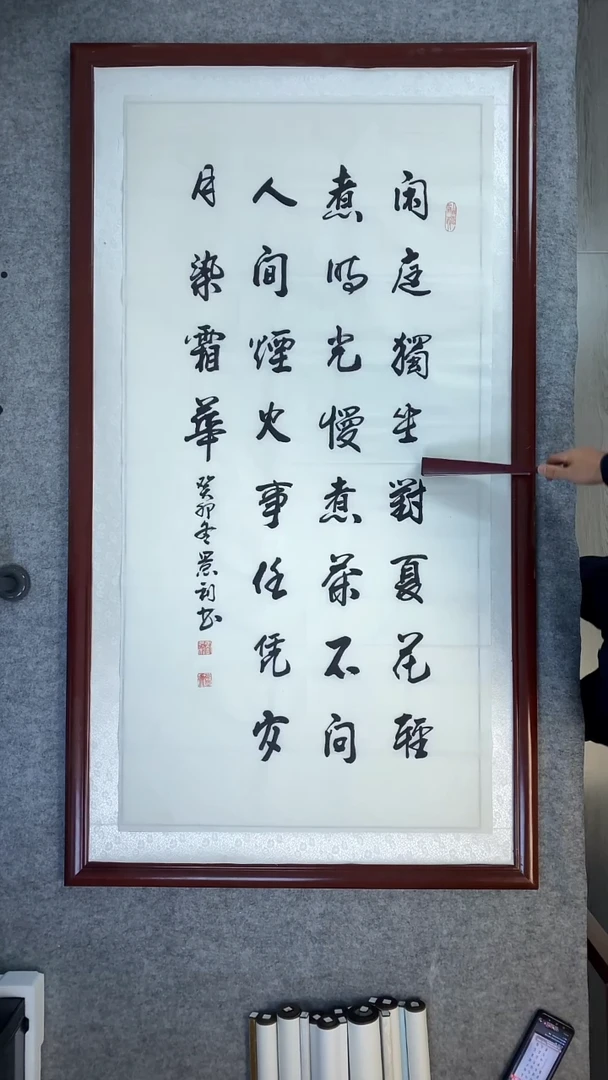 闲庭獨坐對夏花輕
煮時光慢煮茶不问
人间煙火事任凭岁
月染霜華
癸卯冬景利书